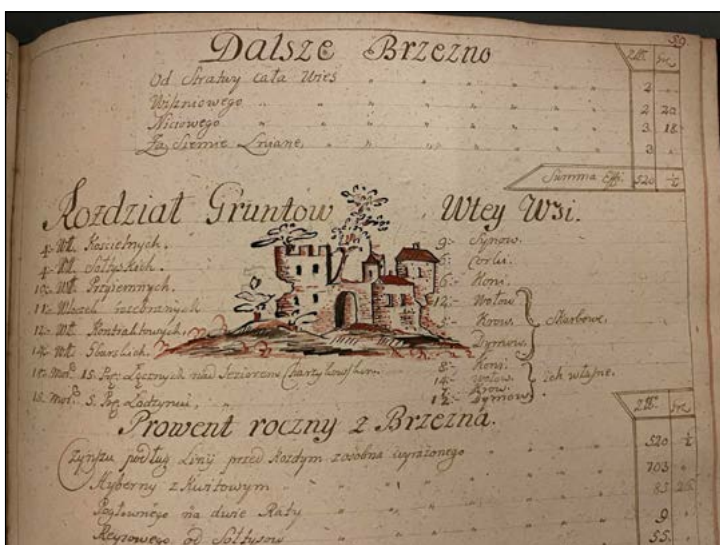 59
Dalsze Brzezno
Złł. gr.
Od Strawy cała Wieś 2
Wiszniowego 2 20
Niciowego 3 18
Za Siemie Lniane. 3
Summa Eff. 520 ½
Rozdział Gruntow Wtey Wsi.
4. Wł. Kościelnych.
4. Wł. Sołtyskich.
10. Wł. Przyiemnych.
11. Włozek rozebranych
12. Wł. Kontraktowych.
14. Wł. Gburskich.
15. Nad Jeziorem
15. Mor. 5. Prę.
9. Synow.
5. Corki.
6. Koni.
12. Wołow
5. Krow.
Dymow.
Skarbowe.
8. Koni.
14. Wołow.
7. Krow
12. Dymow
ich własne.
Prowent roczny z Brzezna.
Złł. gr.
Czynszu podług Linij przed Kozdym zosobna wyrażonego 520 ½
Hyberny z Kwitowym 103
Pogłownego na dwie Raty 85 25
9
Reyzowego od Sołtysow 55